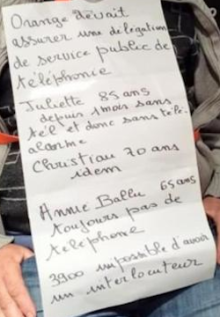 Orange devait
assurer une délégation
de service public de
téléphonie
Juliette 85 ans
depuis 1 mois sans
tél et donc sans télé-
alarme
Christian 70 ans
idem
Annie Ballu 65 ans
toujours pas de
telephone
3900 impossible d'avoir
un interlocuteur